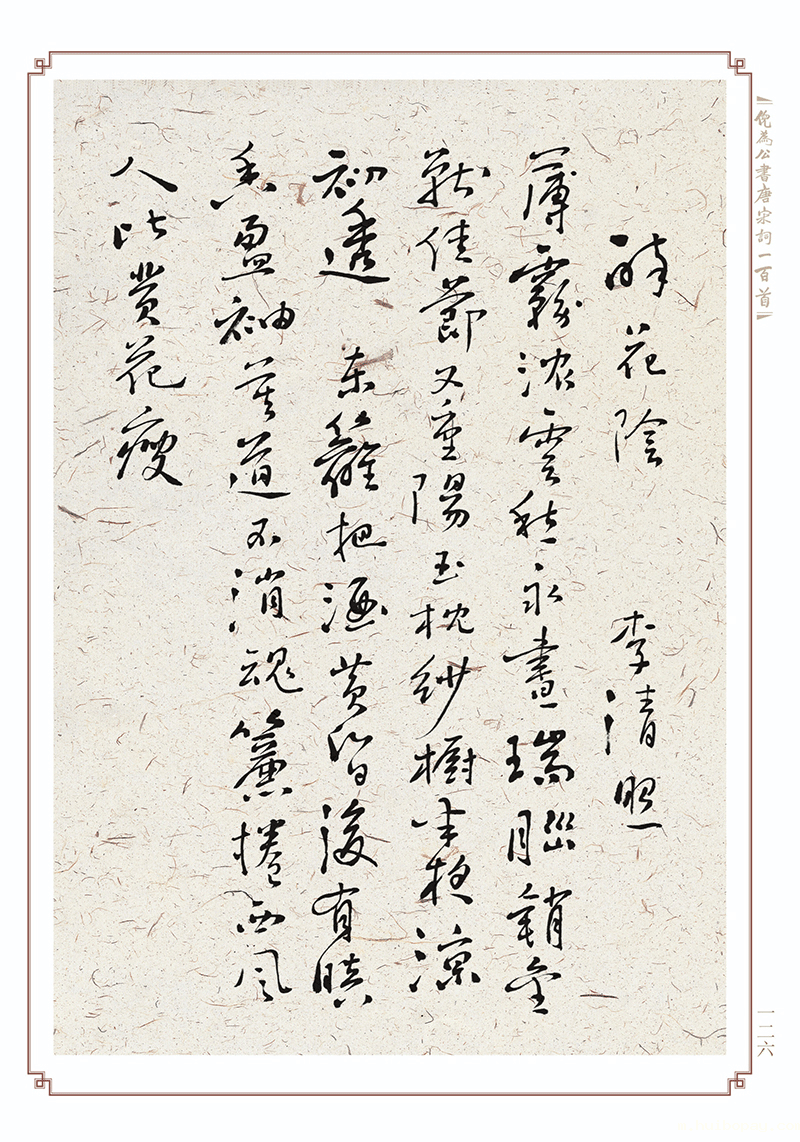 【倪為公書唐宋詞一百首】
醉花陰 李清照
薄霧濃雲愁永晝瑞腦銷金
獸佳節又重陽玉枕紗櫥半夜涼
初透 東籬把酒黃昏後有暗
香盈袖莫道不消魂簾捲西風
人比黃花瘦
一二六